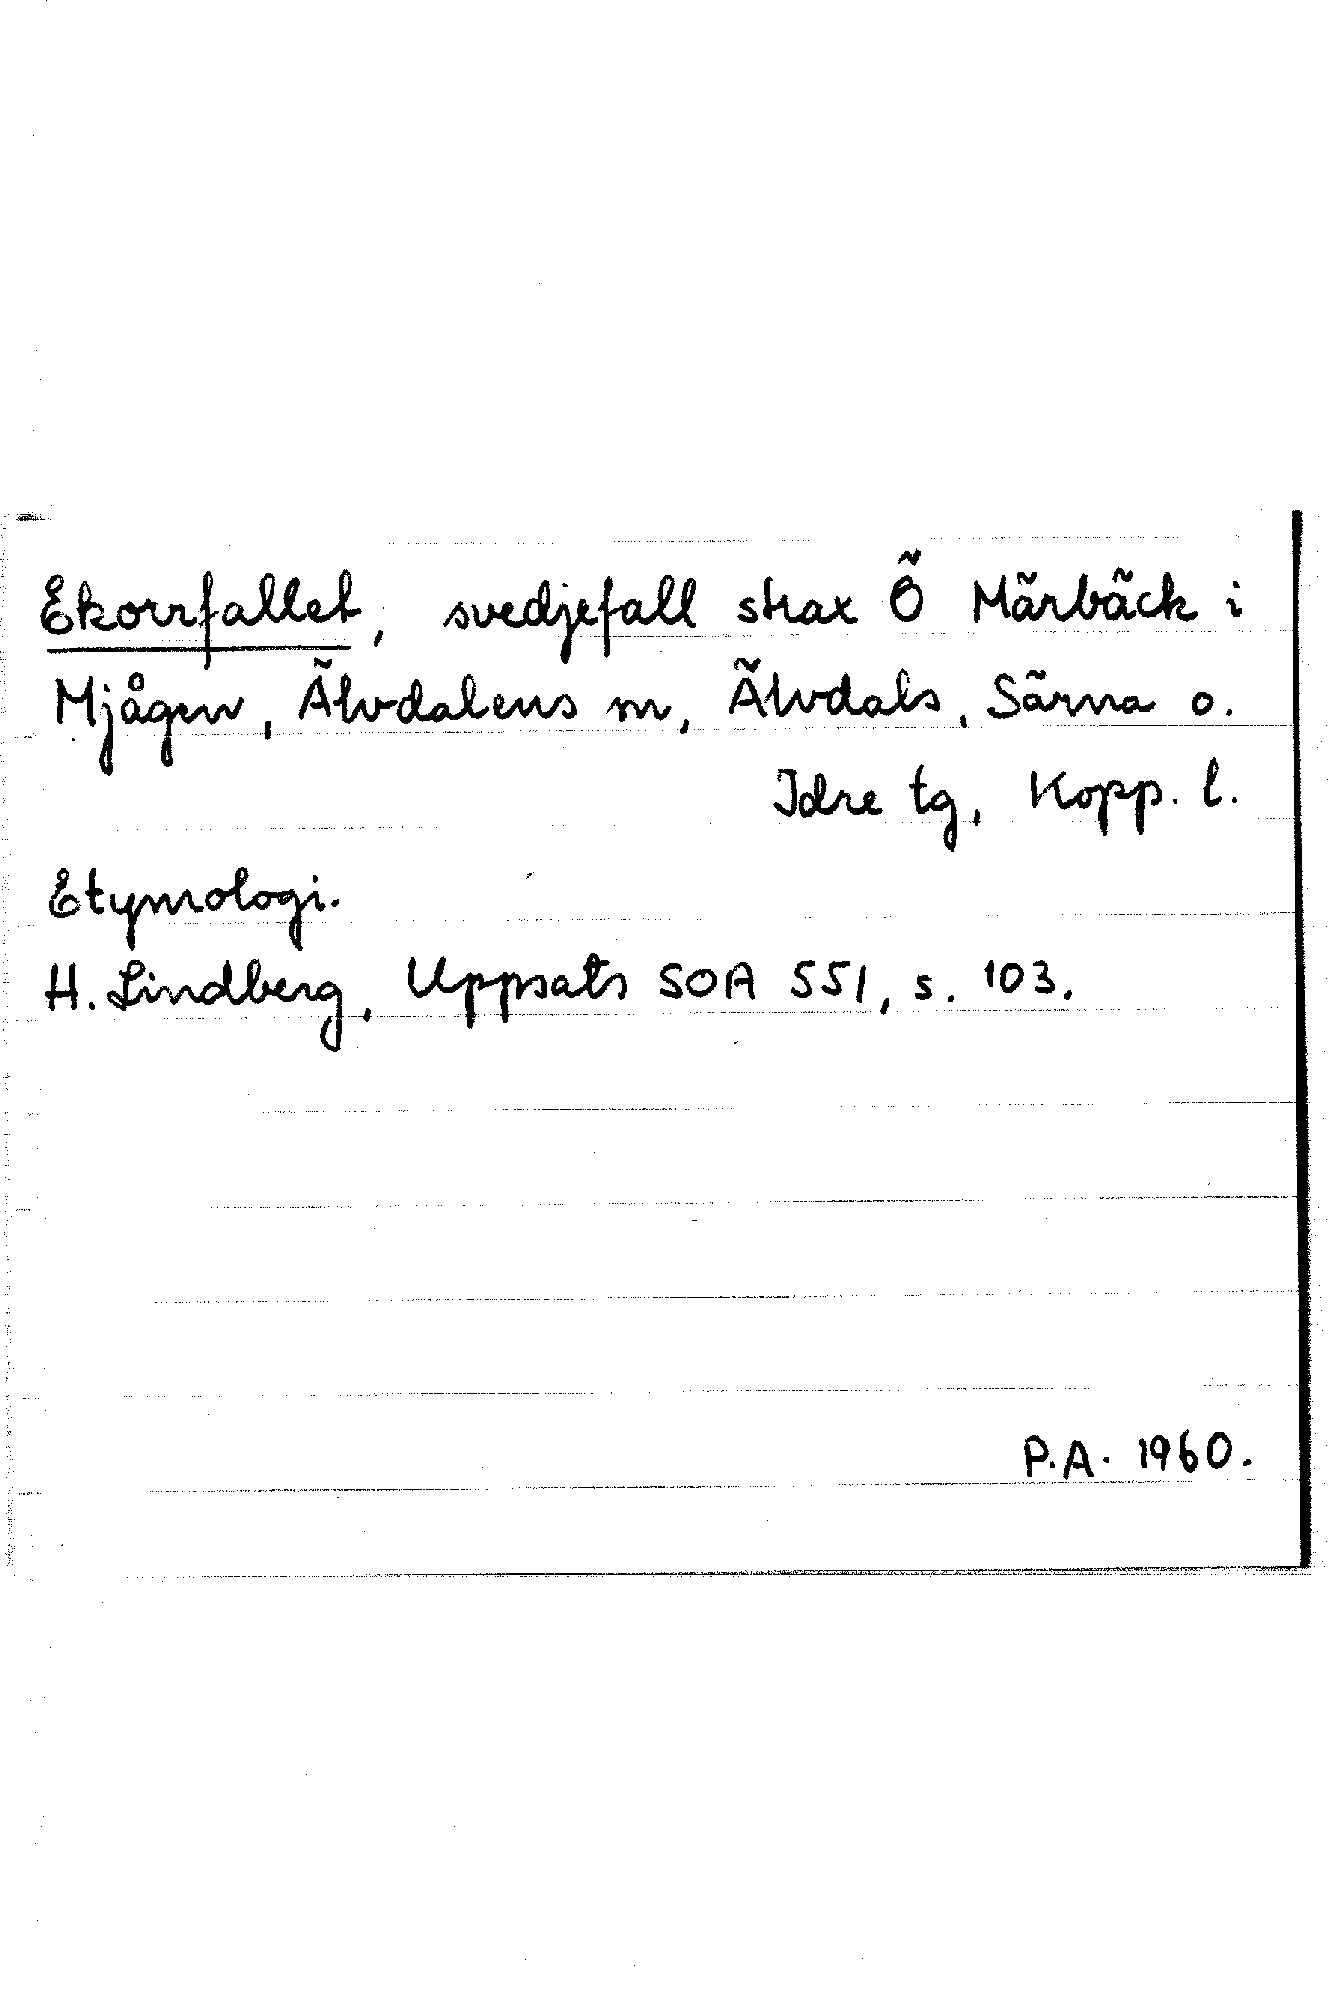 Ekorrfallet, svedjefall strax Ö Märbäck i
Mjågen, Älvdalens sn, Älvdals, Särna o.
Idre tg, Kopp. l.
Etymologi.
H. Lindberg, Uppsats SOA 551, s. 103.
P.A. 1960.